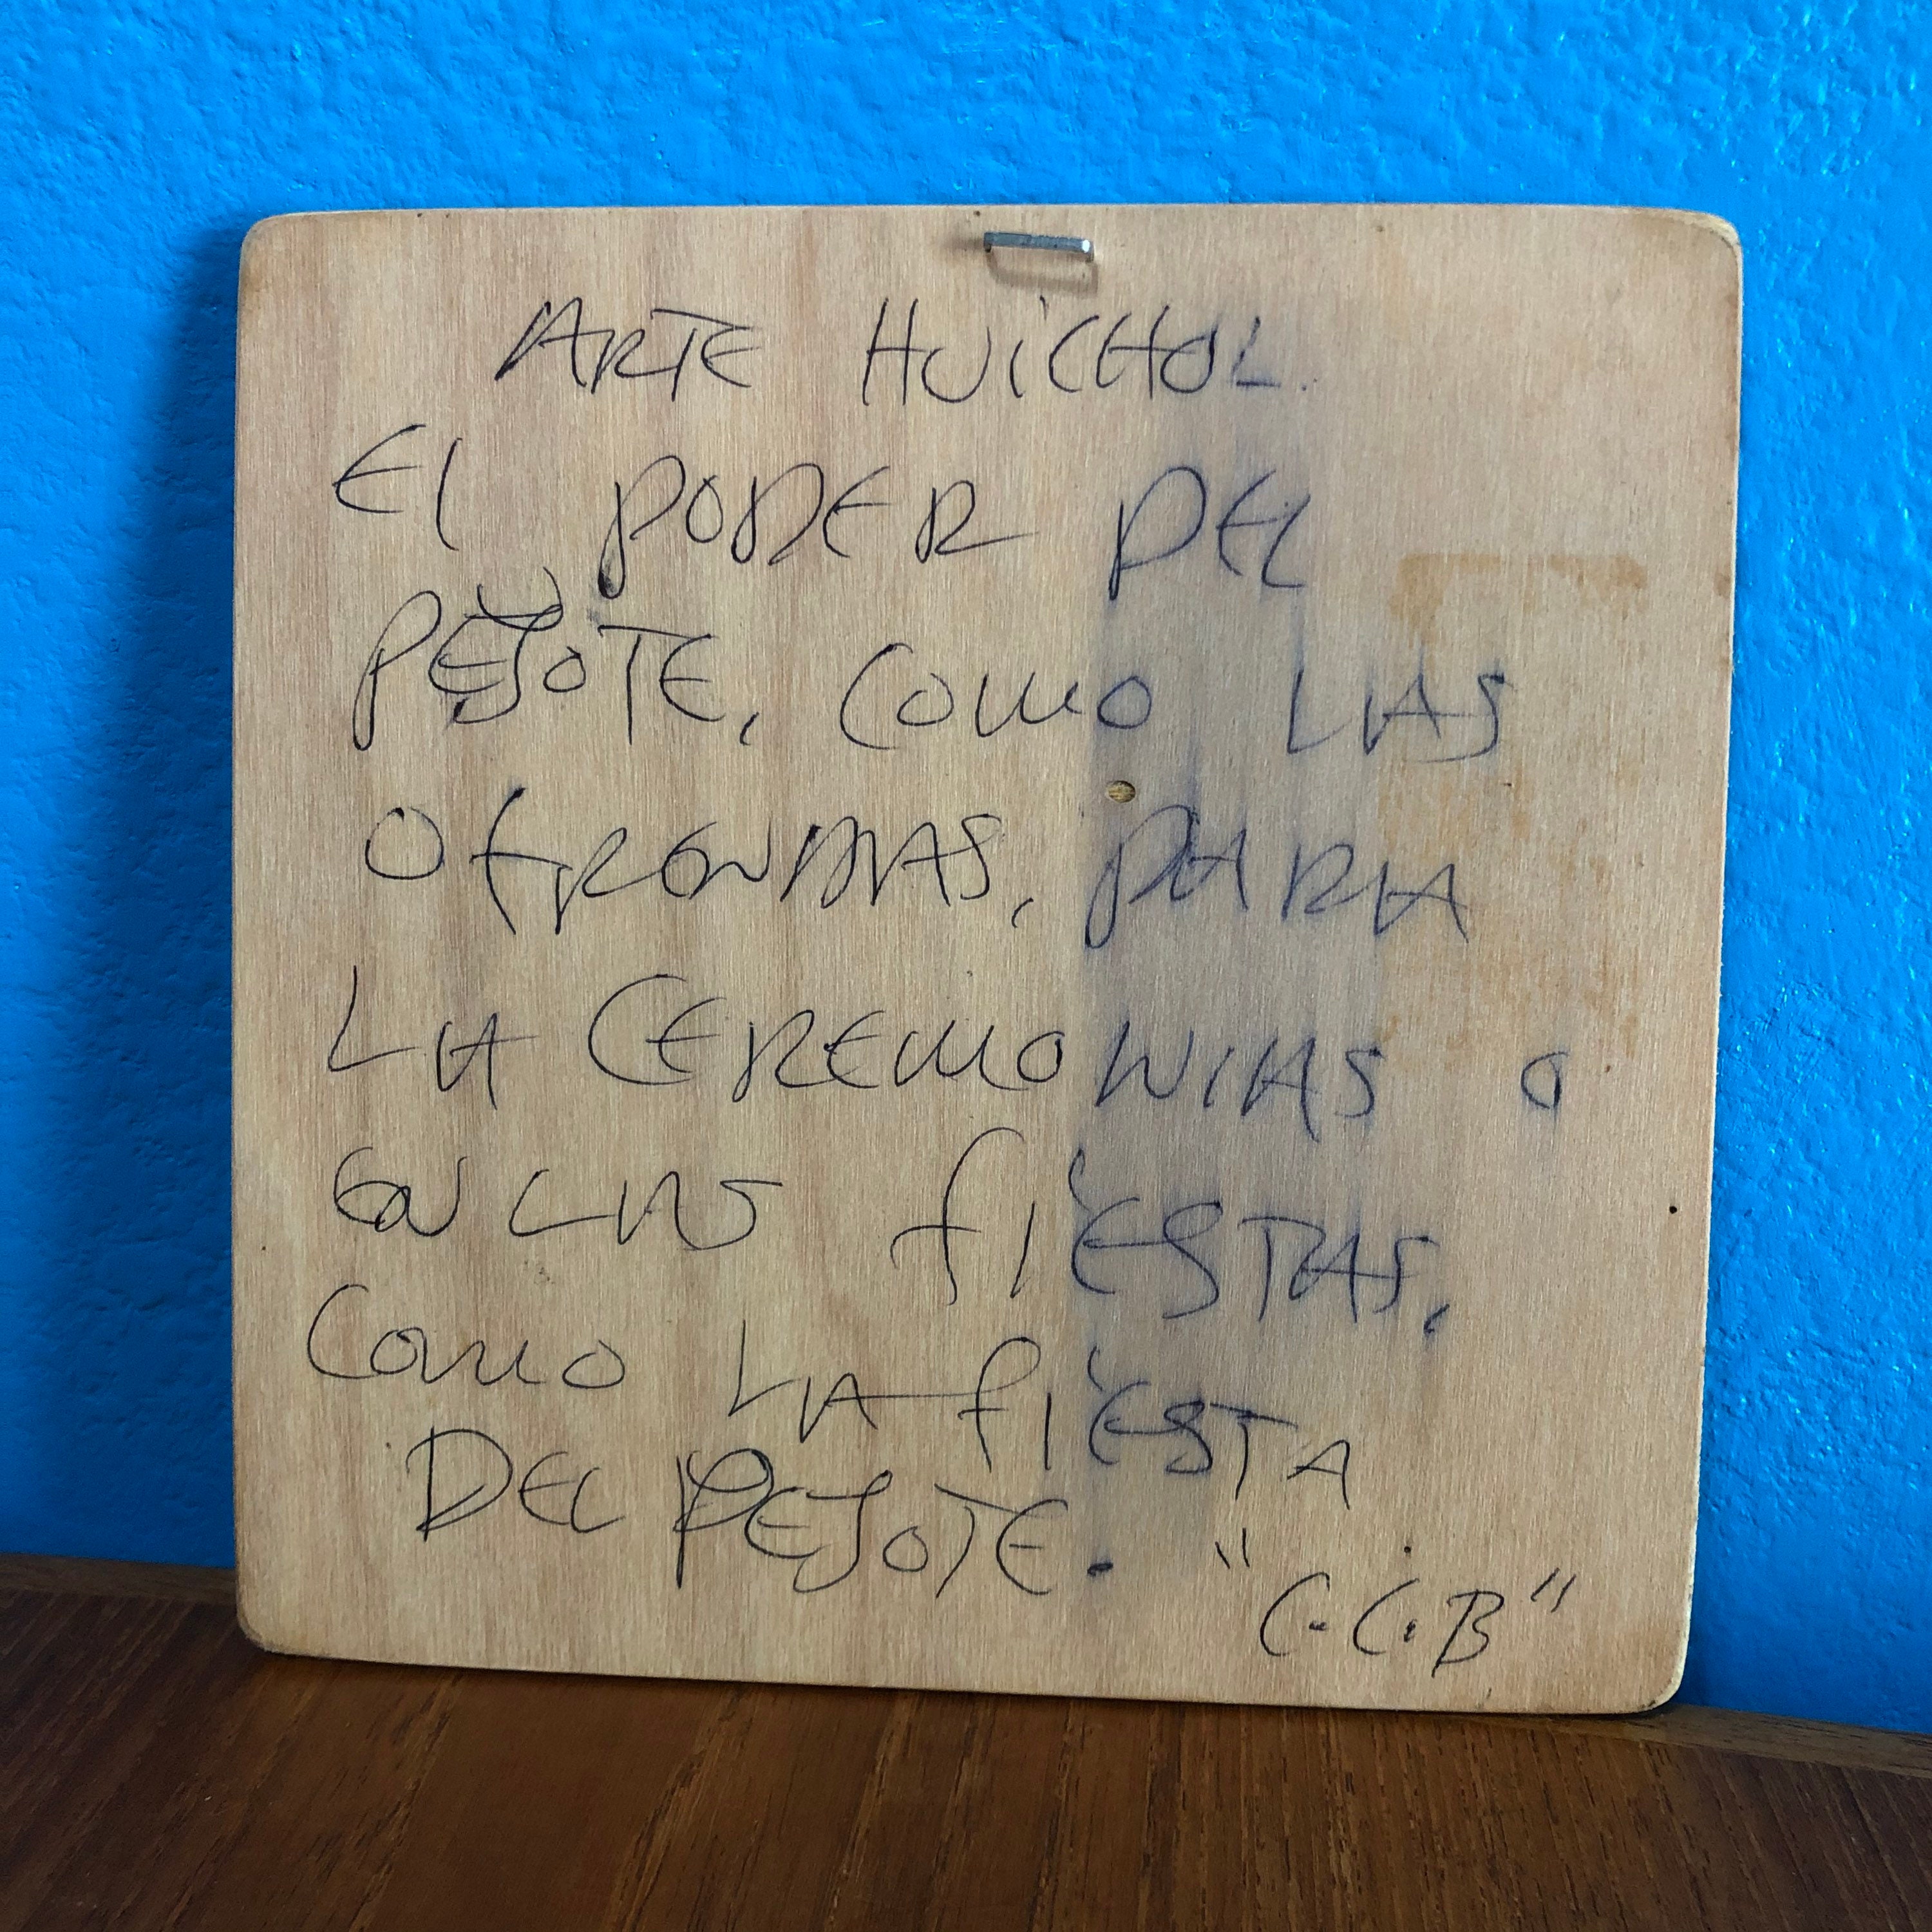 ARTE HUiCHOL.
El PODER DEL
PEJOTE, COMO LAS
OfRENDAS, PARA
LA CEREMONIAS O
EN LAS fiESTAS,
COMO LA fiESTA
DEL PEJOTE. "C.C.B"